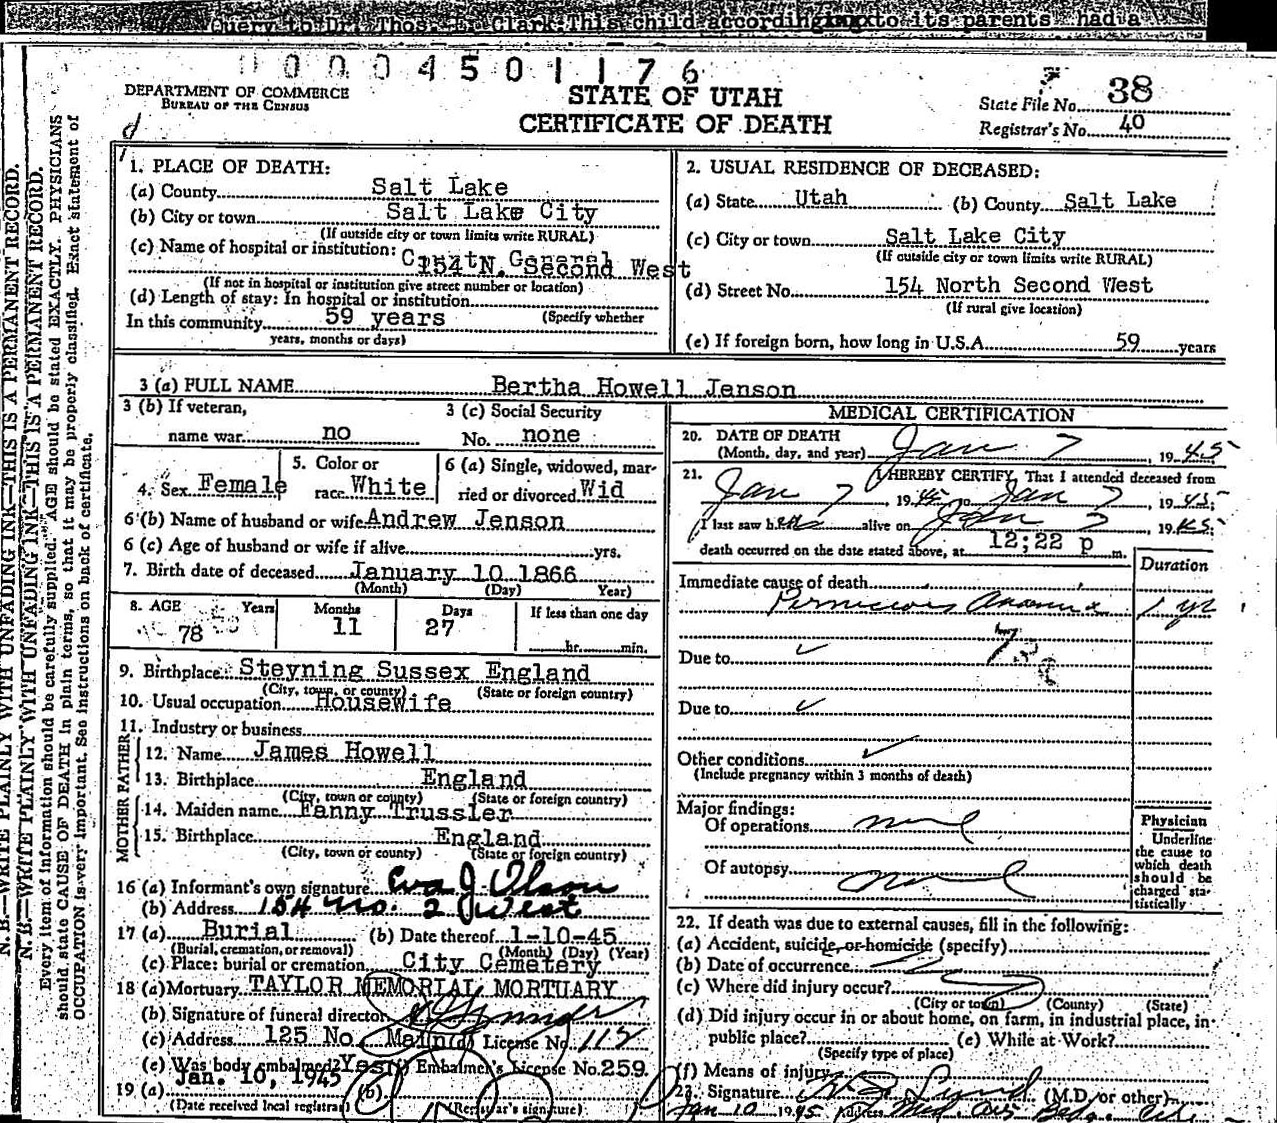 Query to Dr. Thos. Clark This child according to its parents had a
0 0 0 0 4 5 0 1 1 7 6
DEPARTMENT OF COMMERCE
BUREAU OF THE CENSUS
STATE OF UTAH
CERTIFICATE OF DEATH
State File No. 38
Registrar's No. 40
d
N. B.—WRITE PLAINLY WITH UNFADING INK—THIS IS A PERMANENT RECORD.
N. B.—WRITE PLAINLY WITH UNFADING INK—THIS IS A PERMANENT RECORD.
Every item of information should be carefully supplied. AGE should be stated EXACTLY. PHYSICIANS
should state CAUSE OF DEATH in plain terms, so that it may be properly classified. Exact statement of
OCCUPATION is very important. See instructions on back of certificate.
1. PLACE OF DEATH:
(a) County Salt Lake
(b) City or town Salt Lake City
(If outside city or town limits write RURAL)
(c) Name of hospital or institution: General
154 N. Second West
(If not in hospital or institution give street number or location)
(d) Length of stay: In hospital or institution
In this community 59 years (Specify whether
years, months or days)
2. USUAL RESIDENCE OF DECEASED:
(a) State Utah (b) County Salt Lake
(c) City or town Salt Lake City
(If outside city or town limits write RURAL)
(d) Street No. 154 North Second West
(If rural give location)
(e) If foreign born, how long in U.S.A. 59 years
3 (a) FULL NAME Bertha Howell Jenson
3 (b) If veteran, 3 (c) Social Security
name war no No. none
4. Sex Female 5. Color or race White 6 (a) Single, widowed, married or divorced Wid
6 (b) Name of husband or wife Andrew Jenson
6 (c) Age of husband or wife if alive yrs.
7. Birth date of deceased January 10 1866
(Month) (Day) Year)
8. AGE Years Months Days If less than one day
78 11 27 hr. min.
9. Birthplace Steyning Sussex England
(City, town, or county) (State or foreign country)
10. Usual occupation Housewife
11. Industry or business
FATHER
12. Name James Howell
13. Birthplace England
(City, town or county) (State or foreign country)
MOTHER
14. Maiden name Fanny Trussler
15. Birthplace England
(City, town or county) (State or foreign country)
16 (a) Informant's own signature Eva J. Olson
(b) Address 154 No. 2 West
17 (a) Burial (b) Date thereof 1-10-45
(Burial, cremation, or removal) (Month) (Day) (Year)
(c) Place: burial or cremation City Cemetery
18 (a) Mortuary TAYLOR MEMORIAL MORTUARY
(b) Signature of funeral director
(c) Address 125 No. Main (d) License No. 112
(e) Was body embalmed? Yes (f) Embalmer's License No. 259
19 (a) Jan. 10, 1945 (b)
(Date received local registrar) (Registrar's signature)
MEDICAL CERTIFICATION
20. DATE OF DEATH
(Month, day, and year) Jan 7, 1945
21. I HEREBY CERTIFY, That I attended deceased from
Jan 7, 1945 to Jan 7, 1945
I last saw her alive on Jan 7, 1945
death occurred on the date stated above, at 12;22 p m.
Duration
Immediate cause of death
Pernicious Anemia 1 yr
Due to
Due to
Other conditions
(Include pregnancy within 3 months of death)
Major findings:
Of operations none
Of autopsy none
Physician
Underline
the cause to
which death
should be
charged sta-
tistically
22. If death was due to external causes, fill in the following:
(a) Accident, suicide, or homicide (specify)
(b) Date of occurrence
(c) Where did injury occur?
(City or town) (County) (State)
(d) Did injury occur in or about home, on farm, in industrial place, in
public place? (e) While at Work?
(Specify type of place)
(f) Means of injury
23. Signature (M.D. or other)
Jan 10 1945 Address Med. Arts Bldg. City